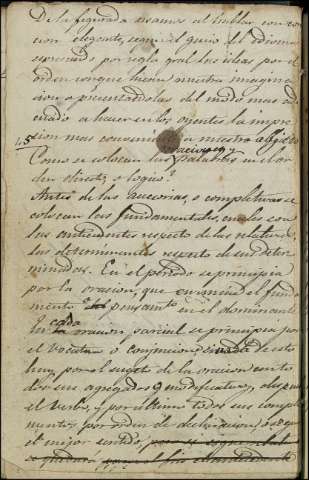 De la figurada usamos al hablar con
cion elegante, segun el genio del idioma
espresando por regla gral las ideas por el
orden conque hieren nuestra imagina
cion o presentandolas del modo mas
cuado a hacer en los oyentes la impre
sion mas conveniente a nuestro objeto
oraciones y
Como se colocan las palabras en el or
den directo o logico?
Antes de las accesorias, o completivas se
colocan las fundamentales, cuales son
los antecedentes respecto de los relativos
los determinantes respecto de sus deter
minados. En el periodo se principia
por la oracion, que enuncia el funda
mento del pensamto en el dominante
cada
En oracion parcial se principia por
el vocativo o conjuncion, de esto
hay, por el sugeto de la oracion con to
dos sus agregados y modificativos, despues
el verbo, y por ultimo todos sus comple
mentos, por orden de declinacion, o segun
el mejor sentido,